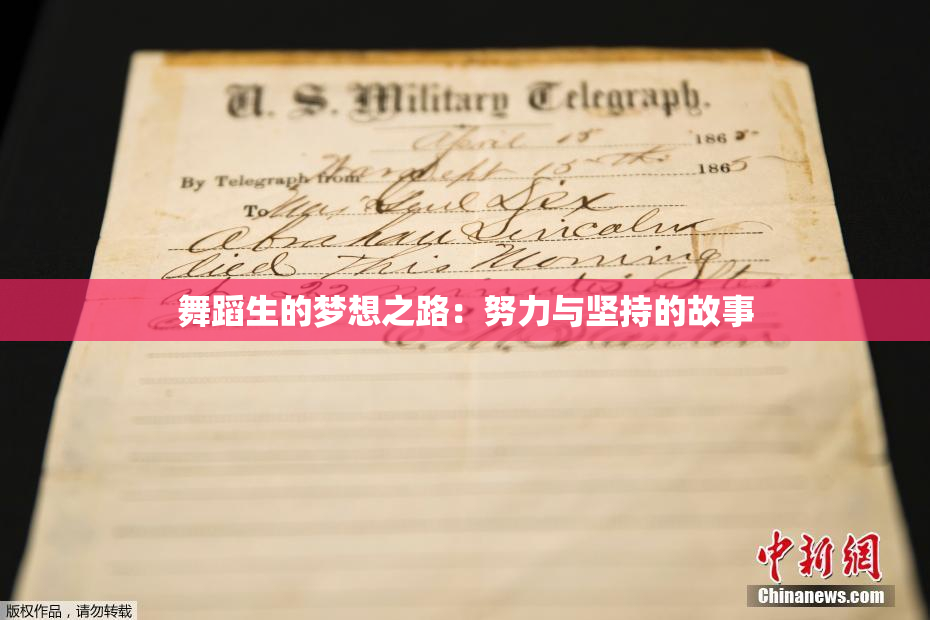 U. S. Military Telegraph.
April 15 1865
By Telegraph from War Dept 15th 1865
To Maj Genl Dix
Abraham Lincoln
died This Morning
at 22 minutes after
舞蹈生的梦想之路：努力与坚持的故事
中新网
Chinanews.com
版权作品，请勿转载